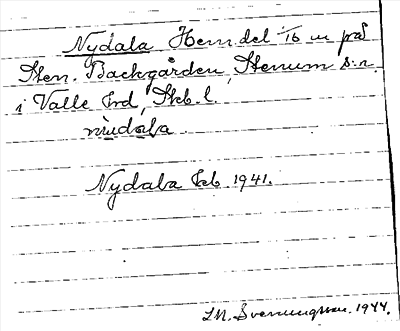 Nydala Hem.del 1/16 m på
Hem. Backgården, Stenum s:n.
i Valle hrd, Skb. l.
nùdala
Nydala Ekb. 1941.
J.M. Svenungsson. 1944.